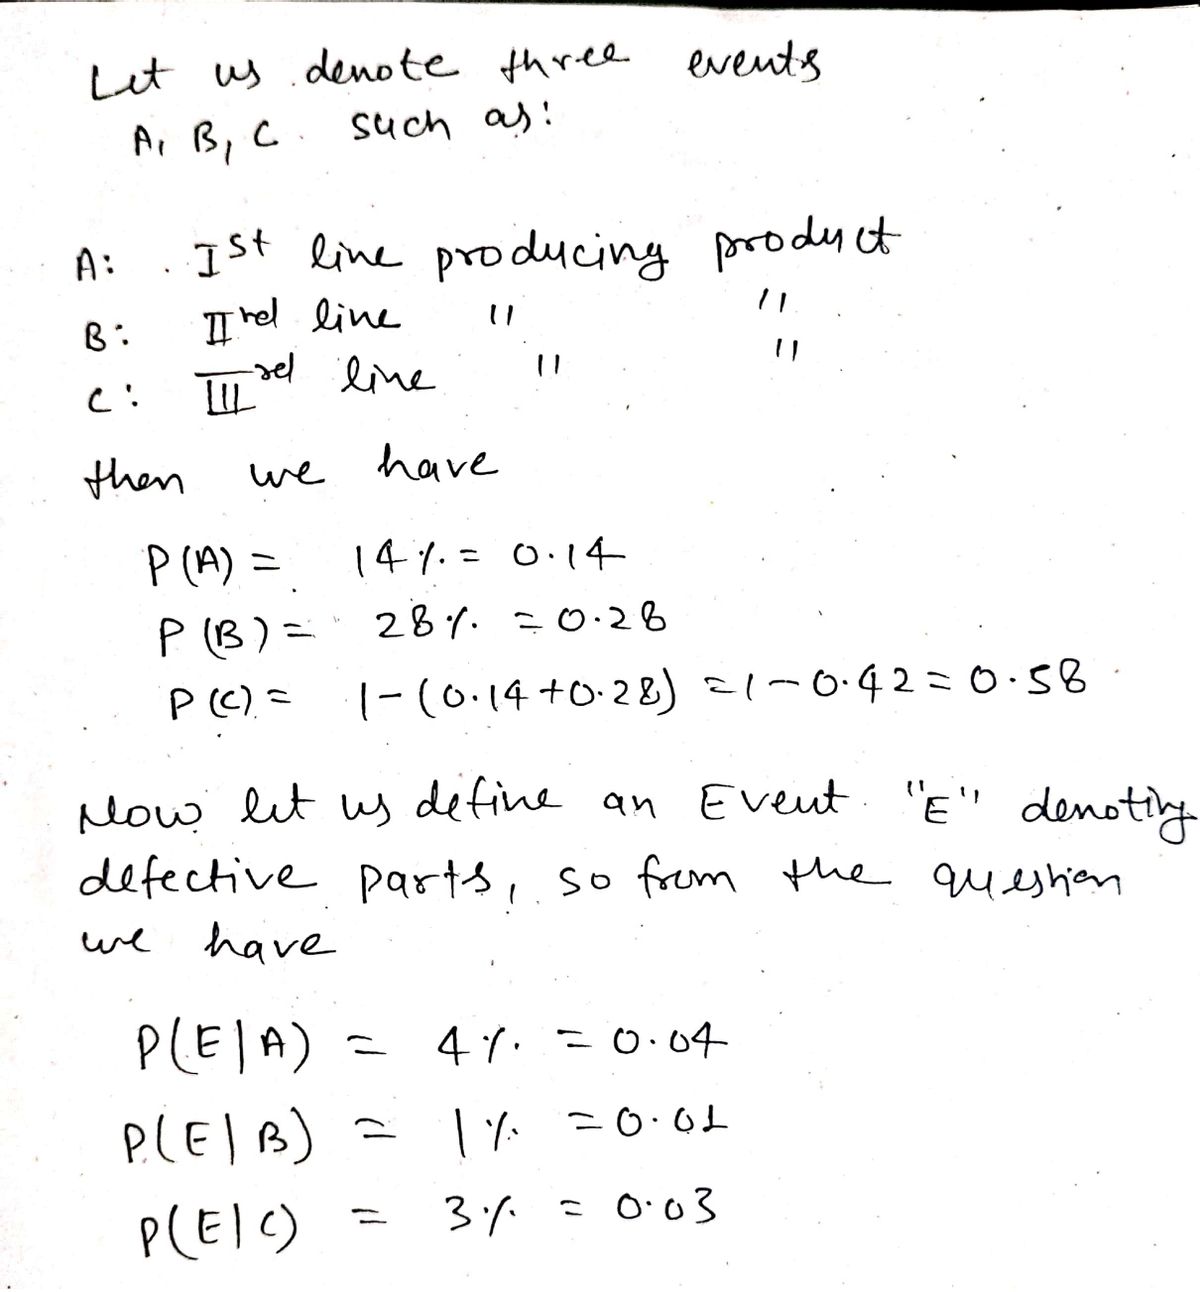 Let us denote three events
A, B, C such as:
A: Ist line producing product
B: IInd line " "
C: IIIrd line " "
then we have
P(A) = 14% = 0.14
P(B) = 28% = 0.28
P(C) = 1-(0.14+0.28) = 1-0.42 = 0.58
Now let us define an Event "E" denoting
defective parts, so from the question
we have
P(E|A) = 4% = 0.04
P(E|B) = 1% = 0.01
P(E|C) = 3% = 0.03